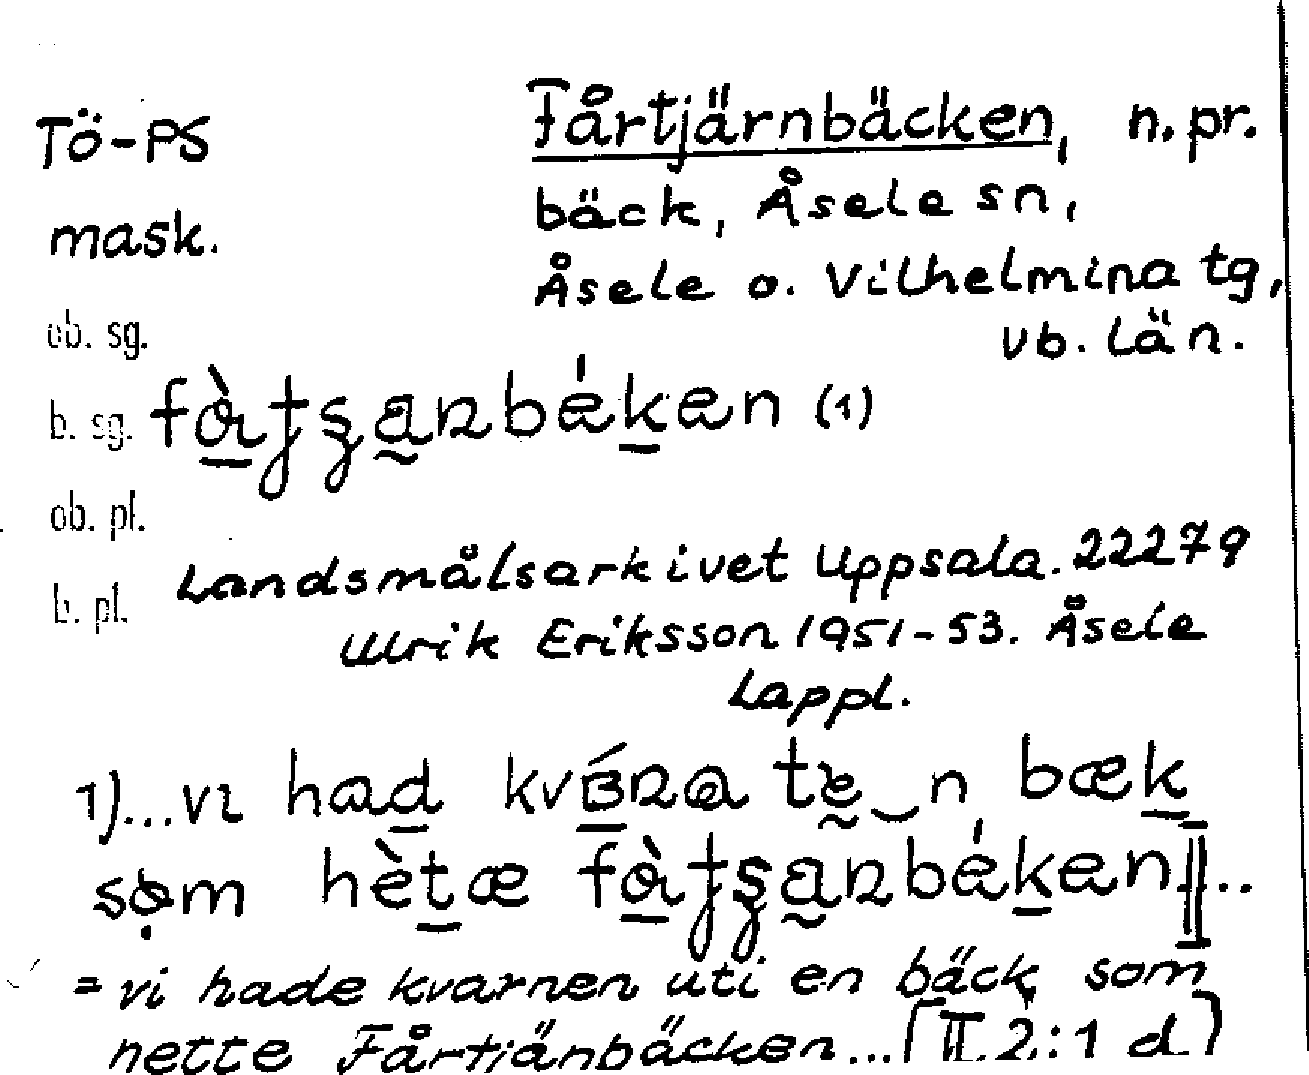 Tö-PS Fårtjärnbäcken, n.pr.
mask. bäck, Åsele sn,
Åsele o. Vilhelmina tg,
ob. sg. vb. län.
b. sg. (1)
ob. pl.
b. pl. Landsmålsarkivet Uppsala. 22279
Ulrik Eriksson 1951-53. Åsele
Lappl.
1)...vɩ had bæk
som hètæ
= vi hade kvarnen uti en bäck som
hette Fårtjänbäcken...[II.2:1 d]